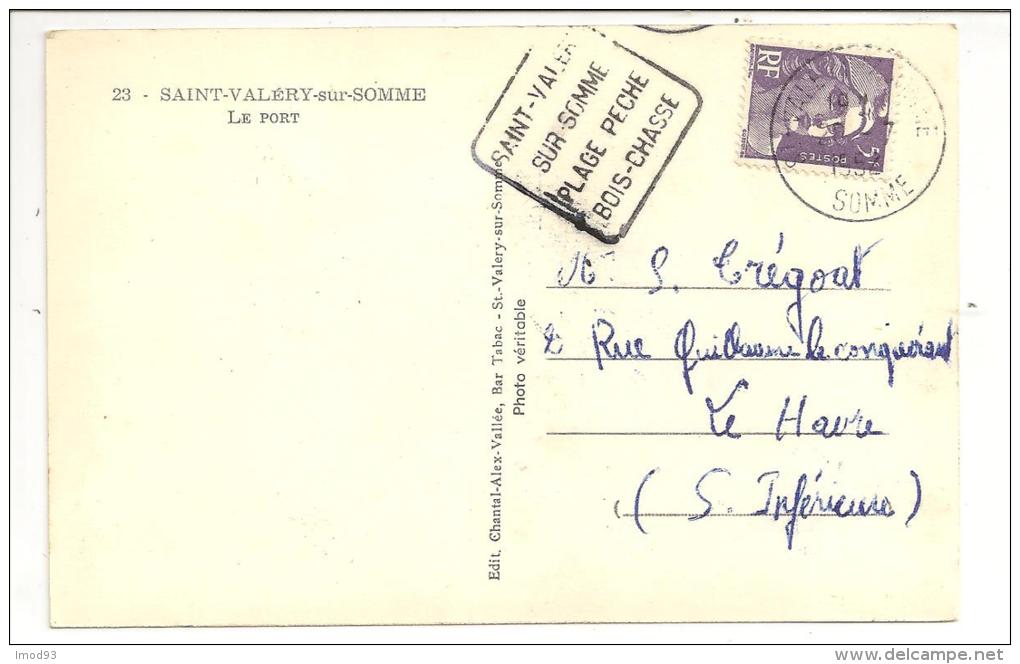 23 - SAINT-VALÉRY-sur-SOMME
LE PORT
SAINT-VALER
SUR-SOMME
PLAGE PECHE
BOIS-CHASSE
RF
5F
POSTES
SOMME
S. Crégoat
Rue Guillaume le conquérant
Le Havre
(S. Inférieure)
Edit. Chantal-Alex-Vallée, Bar Tabac - St.-Valery-sur-Somme
Photo véritable
lmod93
delcampe.net